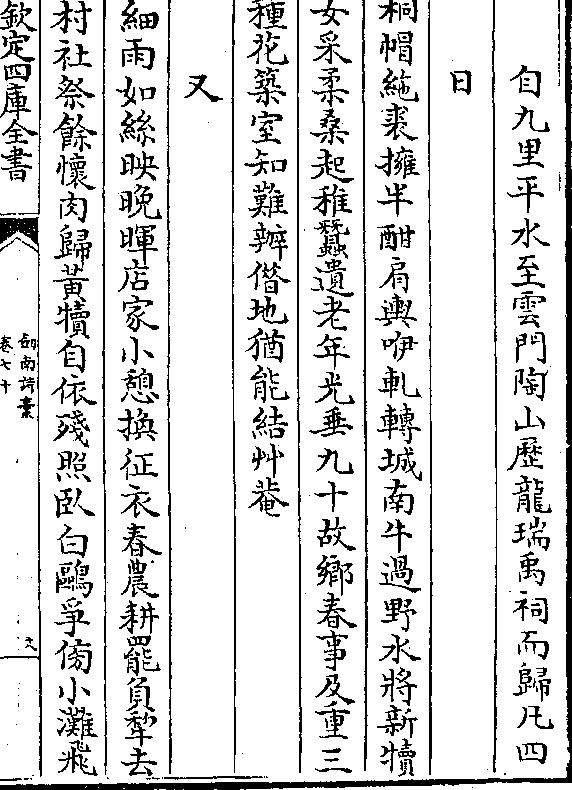 自九里平水至雲門陶山歷龍瑞禹祠而歸凡四
日
桐帽絁裘擁半酣肩輿咿軋轉城南牛過野水將新犢
女采柔桑起稚蠶遺老年光垂九十故鄉春事及重三
種花築室知難辦僣地猶能結艸菴
又
細雨如絲映晚暉店家小憩換征衣春農耕罷負犂去
村社祭餘懷肉歸黃犢自依殘照臥白鷗爭傍小灘飛
欽定四庫全書
劍南詩藁
卷七十